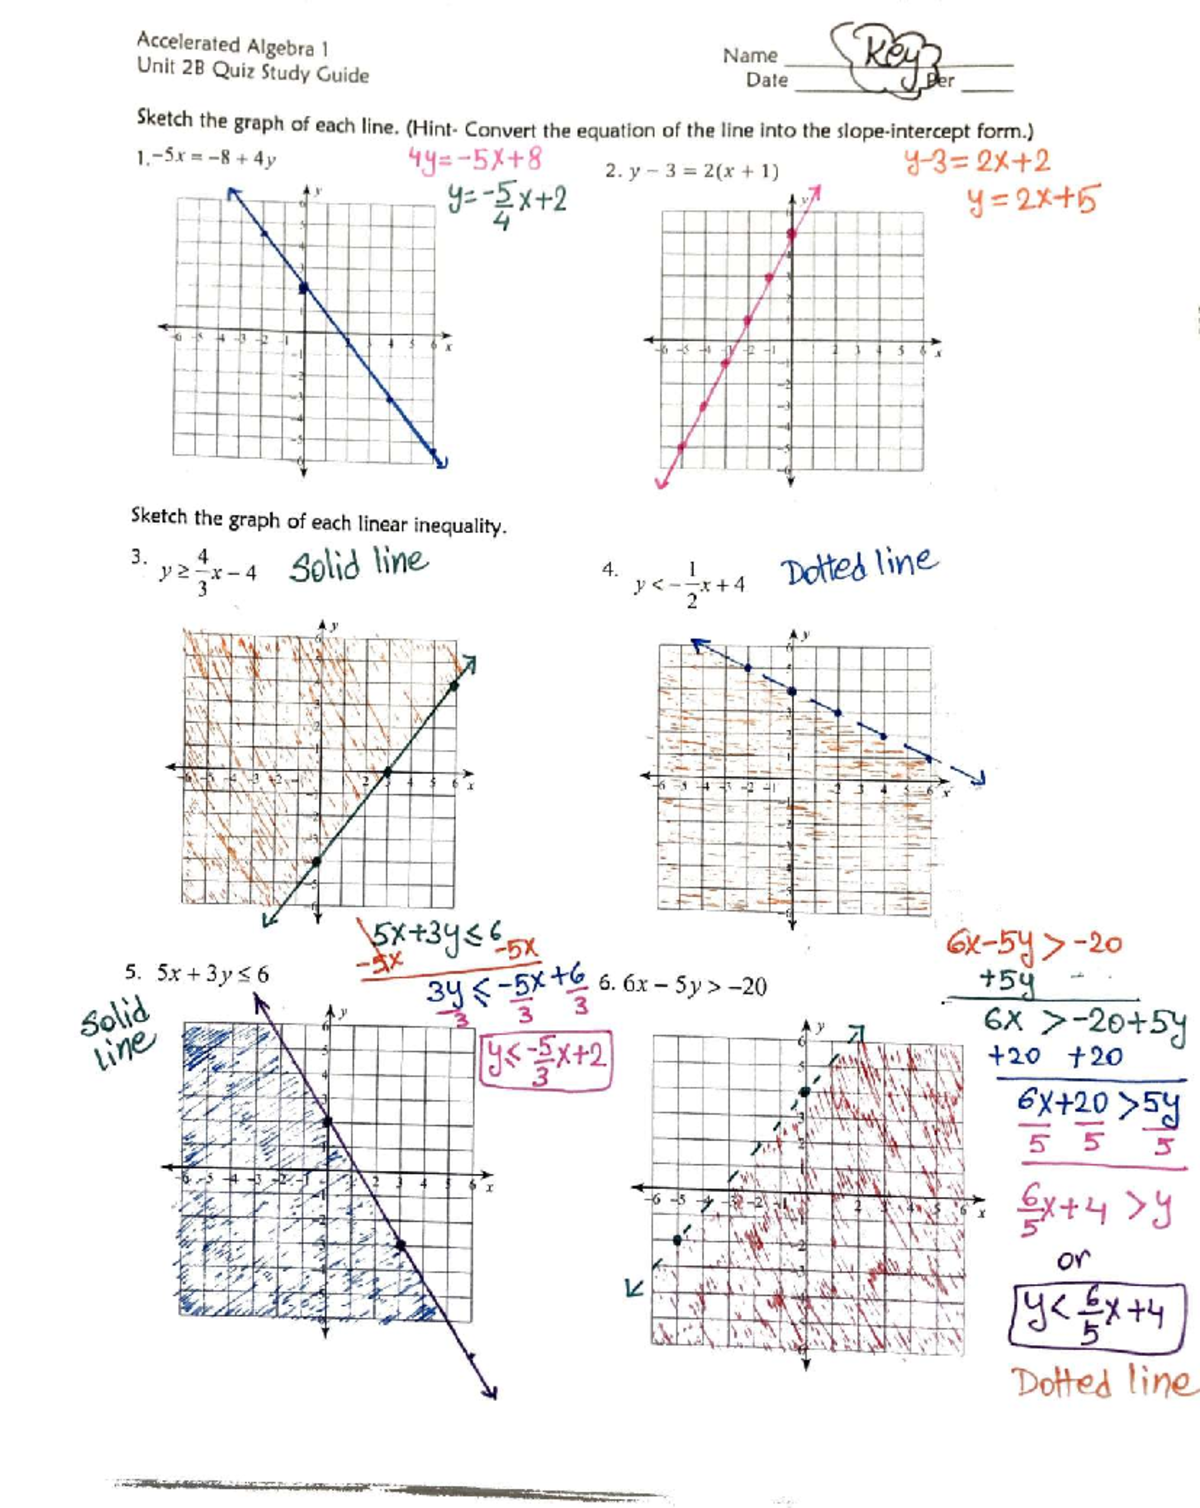 Accelerated Algebra 1
Unit 2B Quiz Study Guide
Name Key
Date Per
Sketch the graph of each line. (Hint- Convert the equation of the line into the slope-intercept form.)
1. -5x = -8 + 4y
4y = -5x+8
y = -5/4 x+2
2. y - 3 = 2(x + 1)
y-3 = 2x+2
y = 2x+5
Sketch the graph of each linear inequality.
3. y ≥ 4/3 x - 4
Solid line
4. y < -1/2 x + 4
Dotted line
5. 5x + 3y ≤ 6
Solid
line
5x+3y ≤ 6
-5x -5x
3y ≤ -5x + 6
3 3 3
y ≤ -5/3 x+2
6. 6x - 5y > -20
6x-5y > -20
+5y
6x > -20+5y
+20 +20
6x+20 > 5y
5 5 5
6/5 x+4 > y
or
y < 6/5 x+4
Dotted line